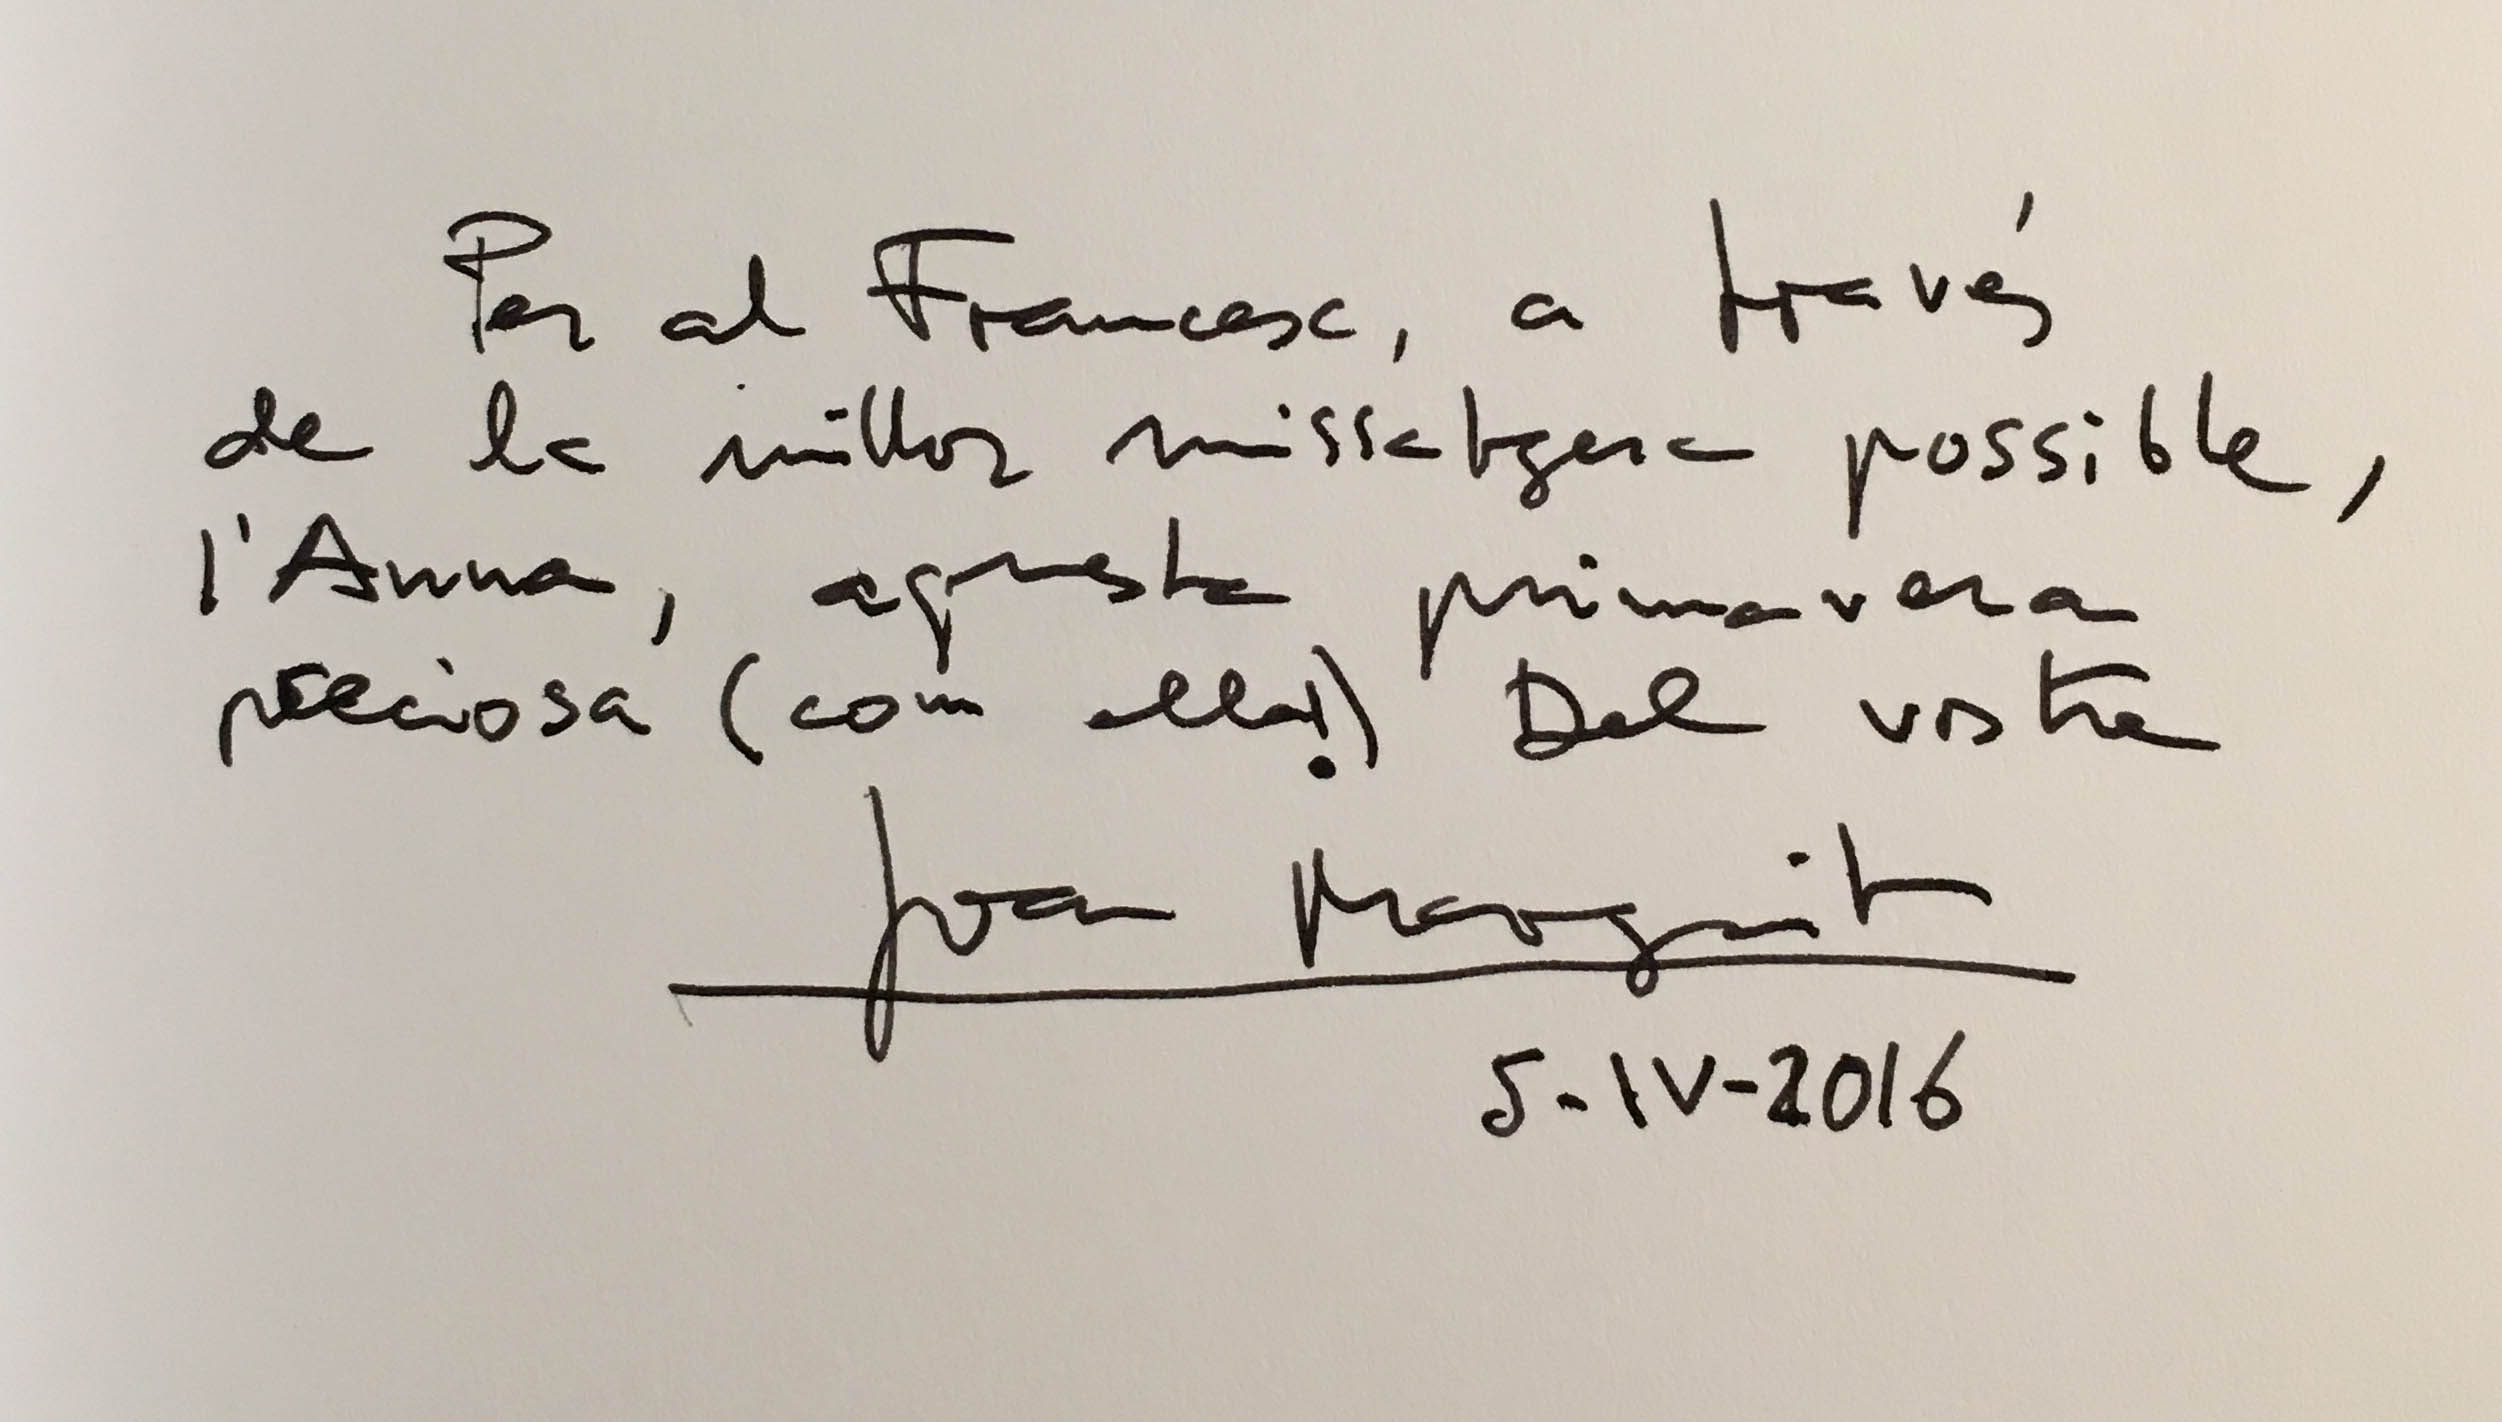 Per al Francesc, a través
de la millor missatgera possible,
l'Anna, aquesta primavera
preciosa (com ella!) Del vostre
Joan Margarit
5-IV-2016